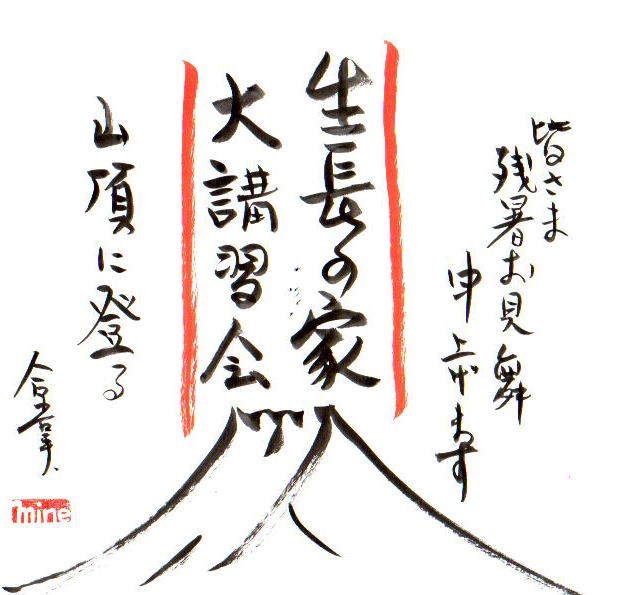 皆さま
残暑お見舞
申上げます
生長の家
大講習会
山頂に登る
合掌
mine